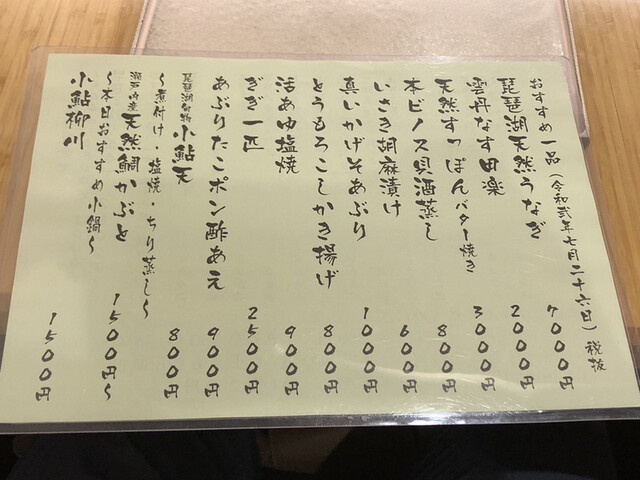 おすすめ一品（令和弐年七月二十六日）税抜
琵琶湖天然うなぎ 7000円
雲丹なす田楽 2000円
天然すっぽんバター焼き 3000円
本ビノス貝酒蒸し 800円
いさき胡麻漬け 600円
真いかげそあぶり 1000円
とうもろこしかき揚げ 800円
活あゆ塩焼 900円
ぎぎ一匹 2500円
あぶりたこポン酢あえ 900円
琵琶湖名物 小鮎天 800円
〜煮付け・塩焼・ちり蒸し〜
瀬戸内産 天然鯛かぶと 1500円〜
〜本日おすすめ小鍋〜
小鮎柳川 1500円